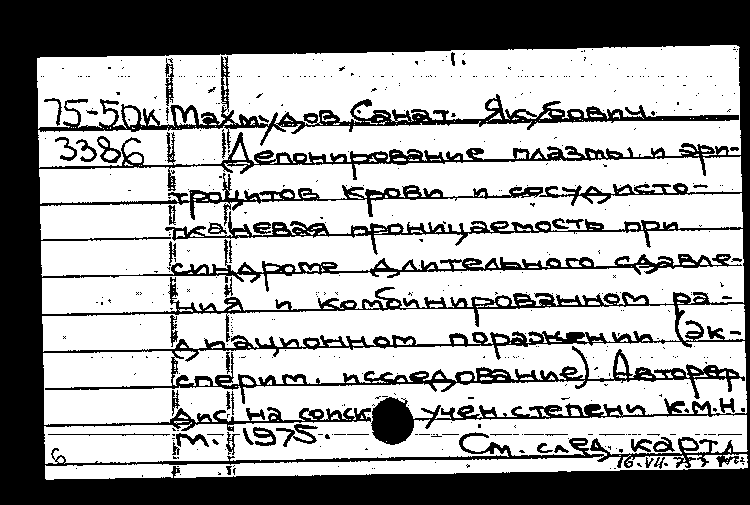 1.
75-5DK Махмудов, Санат. Якубович.
3386 Депонирование плазмы и эри-
троцитов крови и сосудисто-
тканевая проницаемость при
синдроме длительного сдавле-
ния и комбинированном ра-
диационном поражении. (Эк-
сперим. исследование). Автореф.
дис. на соиск учен. степени к.м.н.
т. 1975.
6 См. след. карт
16.VII.75